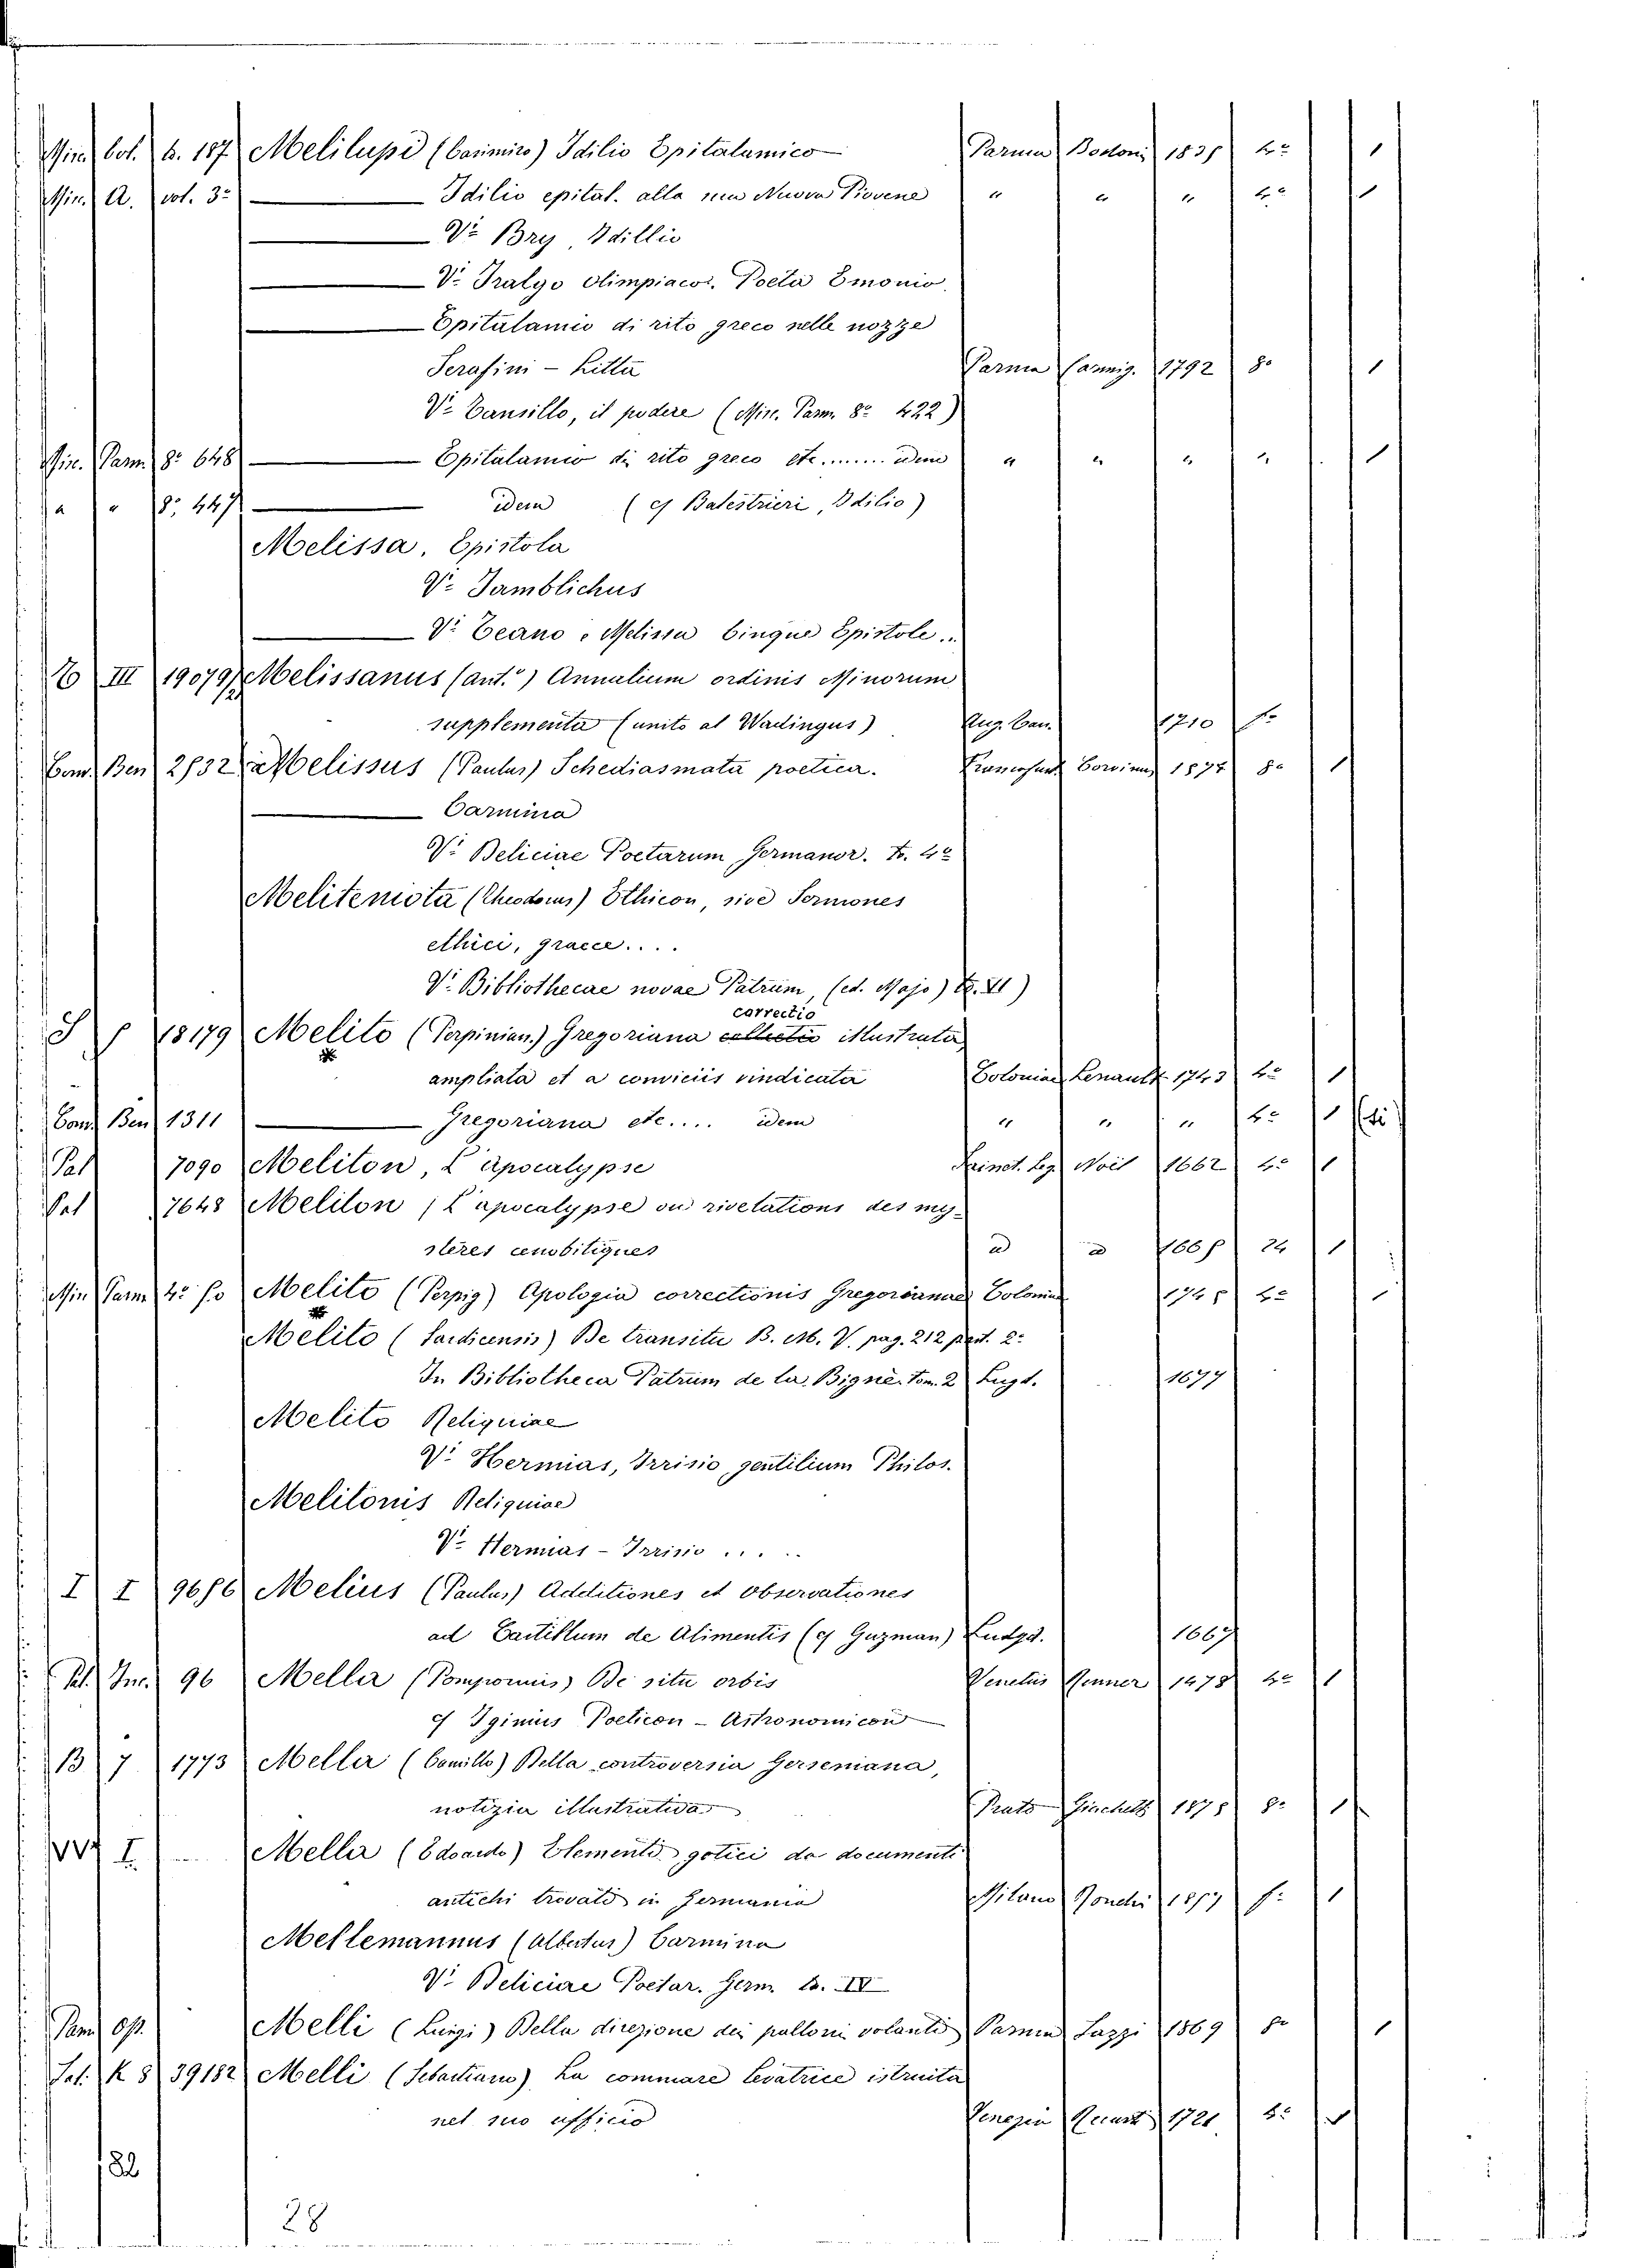 Misc. bot. b. 187 Melilupi (Casimiro) Idilio Epitalamico Parma Bodoni 1831 4º 1
Misc. A. vol. 3º Idilio epital. alla Nuova Piovene " " " 4º 1
Vº Bry, Idillio
Vº Tralgo Olimpiacor. Poeta Emonio
Epitalamio di rito greco nelle nozze
Serafini - Litta Parma Carmig. 1792 8º 1
Vº Tansillo, il podere (Misc. Parm. 8º 422)
Misc. Parm. 8º 648 Epitalamio di rito greco etc....... idem " " " " 1
" " 8º 447 idem (cf Balestrieri, Idilio)
Melissa. Epistola
Vº Jamblichus
Vº Teano e Melissa Cinque Epistole..
III 19079/2 Melissanus (ant.º) Annalium ordinis Minorum
supplementa (unito al Wadingus) Aug. Tau. 1710 fº
Com. Ben 2532 Melissus (Paulus) Schediasmata poetica. Francofurt Corvinus 1574 8º 1
Carmina
Vº Deliciae Poetarum Germanor. to. 4º
Meliteniota (Theodorus) Ethicon, sive Sermones
ethici, graece....
Vº Bibliothecae novae Patrum, (ed. Majo) t. VI)
correctio
S f 18179 Melito (Perpinian.) Gregoriana collectio illustrata
ampliata et a conviciis vindicata Coloniae Renault 1743 4º 1
Com. Ben 1311 Gregoriana etc.... idem " " " 4º 1
Pal 7090 Meliton, L'apocalypse Saint. Leg. Noil 1662 4º 1
Pal 7648 Meliton / L'apocalypse ou rivelations des my-
steres cenobitiques 24 1
Misc Parm 4º Melito (Perpig) Apologia correctionis Gregorianae Coloniae 1745 4º 1
Melito (Sardicensis) De transitu B. M. V. pag. 212 part. 2º
In Bibliotheca Patrum de la Bigne. tom. 2 Lugd. 1677
Melito Reliquiae
Vº Hermias, Irrisio gentilium Philos.
Melitonis Reliquiae
Vº Hermias - Irrisio .....
I I 9656 Melius (Paulus) Additiones et observationes
ad Castillum de Alimentis (cf Guzman) Ludgd. 1667
Pal. Inc. 96 Mella (Pomponius) De situ orbis Venetiis Renner 1478 4º 1
cf Iginius Poeticon - Astronomicon
B 7 1773 Mella (Camillo) Della controversia Gerseniana,
notizia illustrativa Prato Giachetti 1875 8º 1
I Mella (Edoardo) Elementi gotici da documenti
antichi trovati in Germania Milano Ronchi 1857 fº 1
Mellemannus (Albertus) Carmina
Vº Deliciae Poetar. Germ. to. IV
Pam op. Melli (Luigi) Della direzione dei palloni volanti Parma Lazzi 1869 8º 1
Sal. K 8 39182 Melli (Sebastiano) La commare levatrice istruita
nel suo ufficio Venezia Recurti 1721 4º 1
182
28